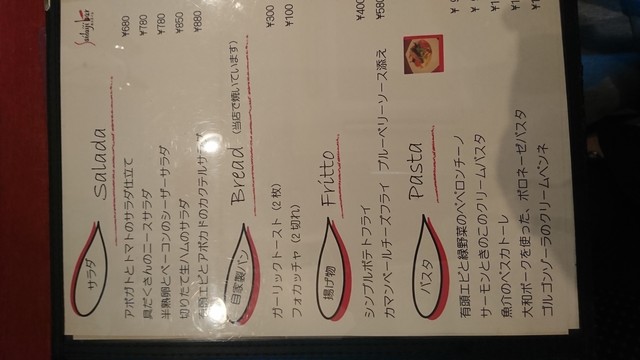 Saidaiji bar
サラダ Salada
アボガドとトマトのサラダ仕立て ¥680
具だくさんのニースサラダ ¥780
半熟卵とベーコンのシーザーサラダ ¥780
切りたて生ハムのサラダ ¥850
有頭エビとアボカドのカクテルサラダ ¥880
自家製パン Bread (当店で焼いています)
ガーリックトースト (2枚) ¥300
フォカッチャ (2切れ) ¥100
揚げ物 Fritto
シンプルポテトフライ ¥400
カマンベールチーズフライ ブルーベリーソース添え ¥680
パスタ Pasta
有頭エビと緑野菜のペペロンチーノ
サーモンときのこのクリームパスタ
魚介のペスカトーレ
大和ポークを使った、ボロネーゼパスタ
ゴルゴンゾーラのクリームペンネ